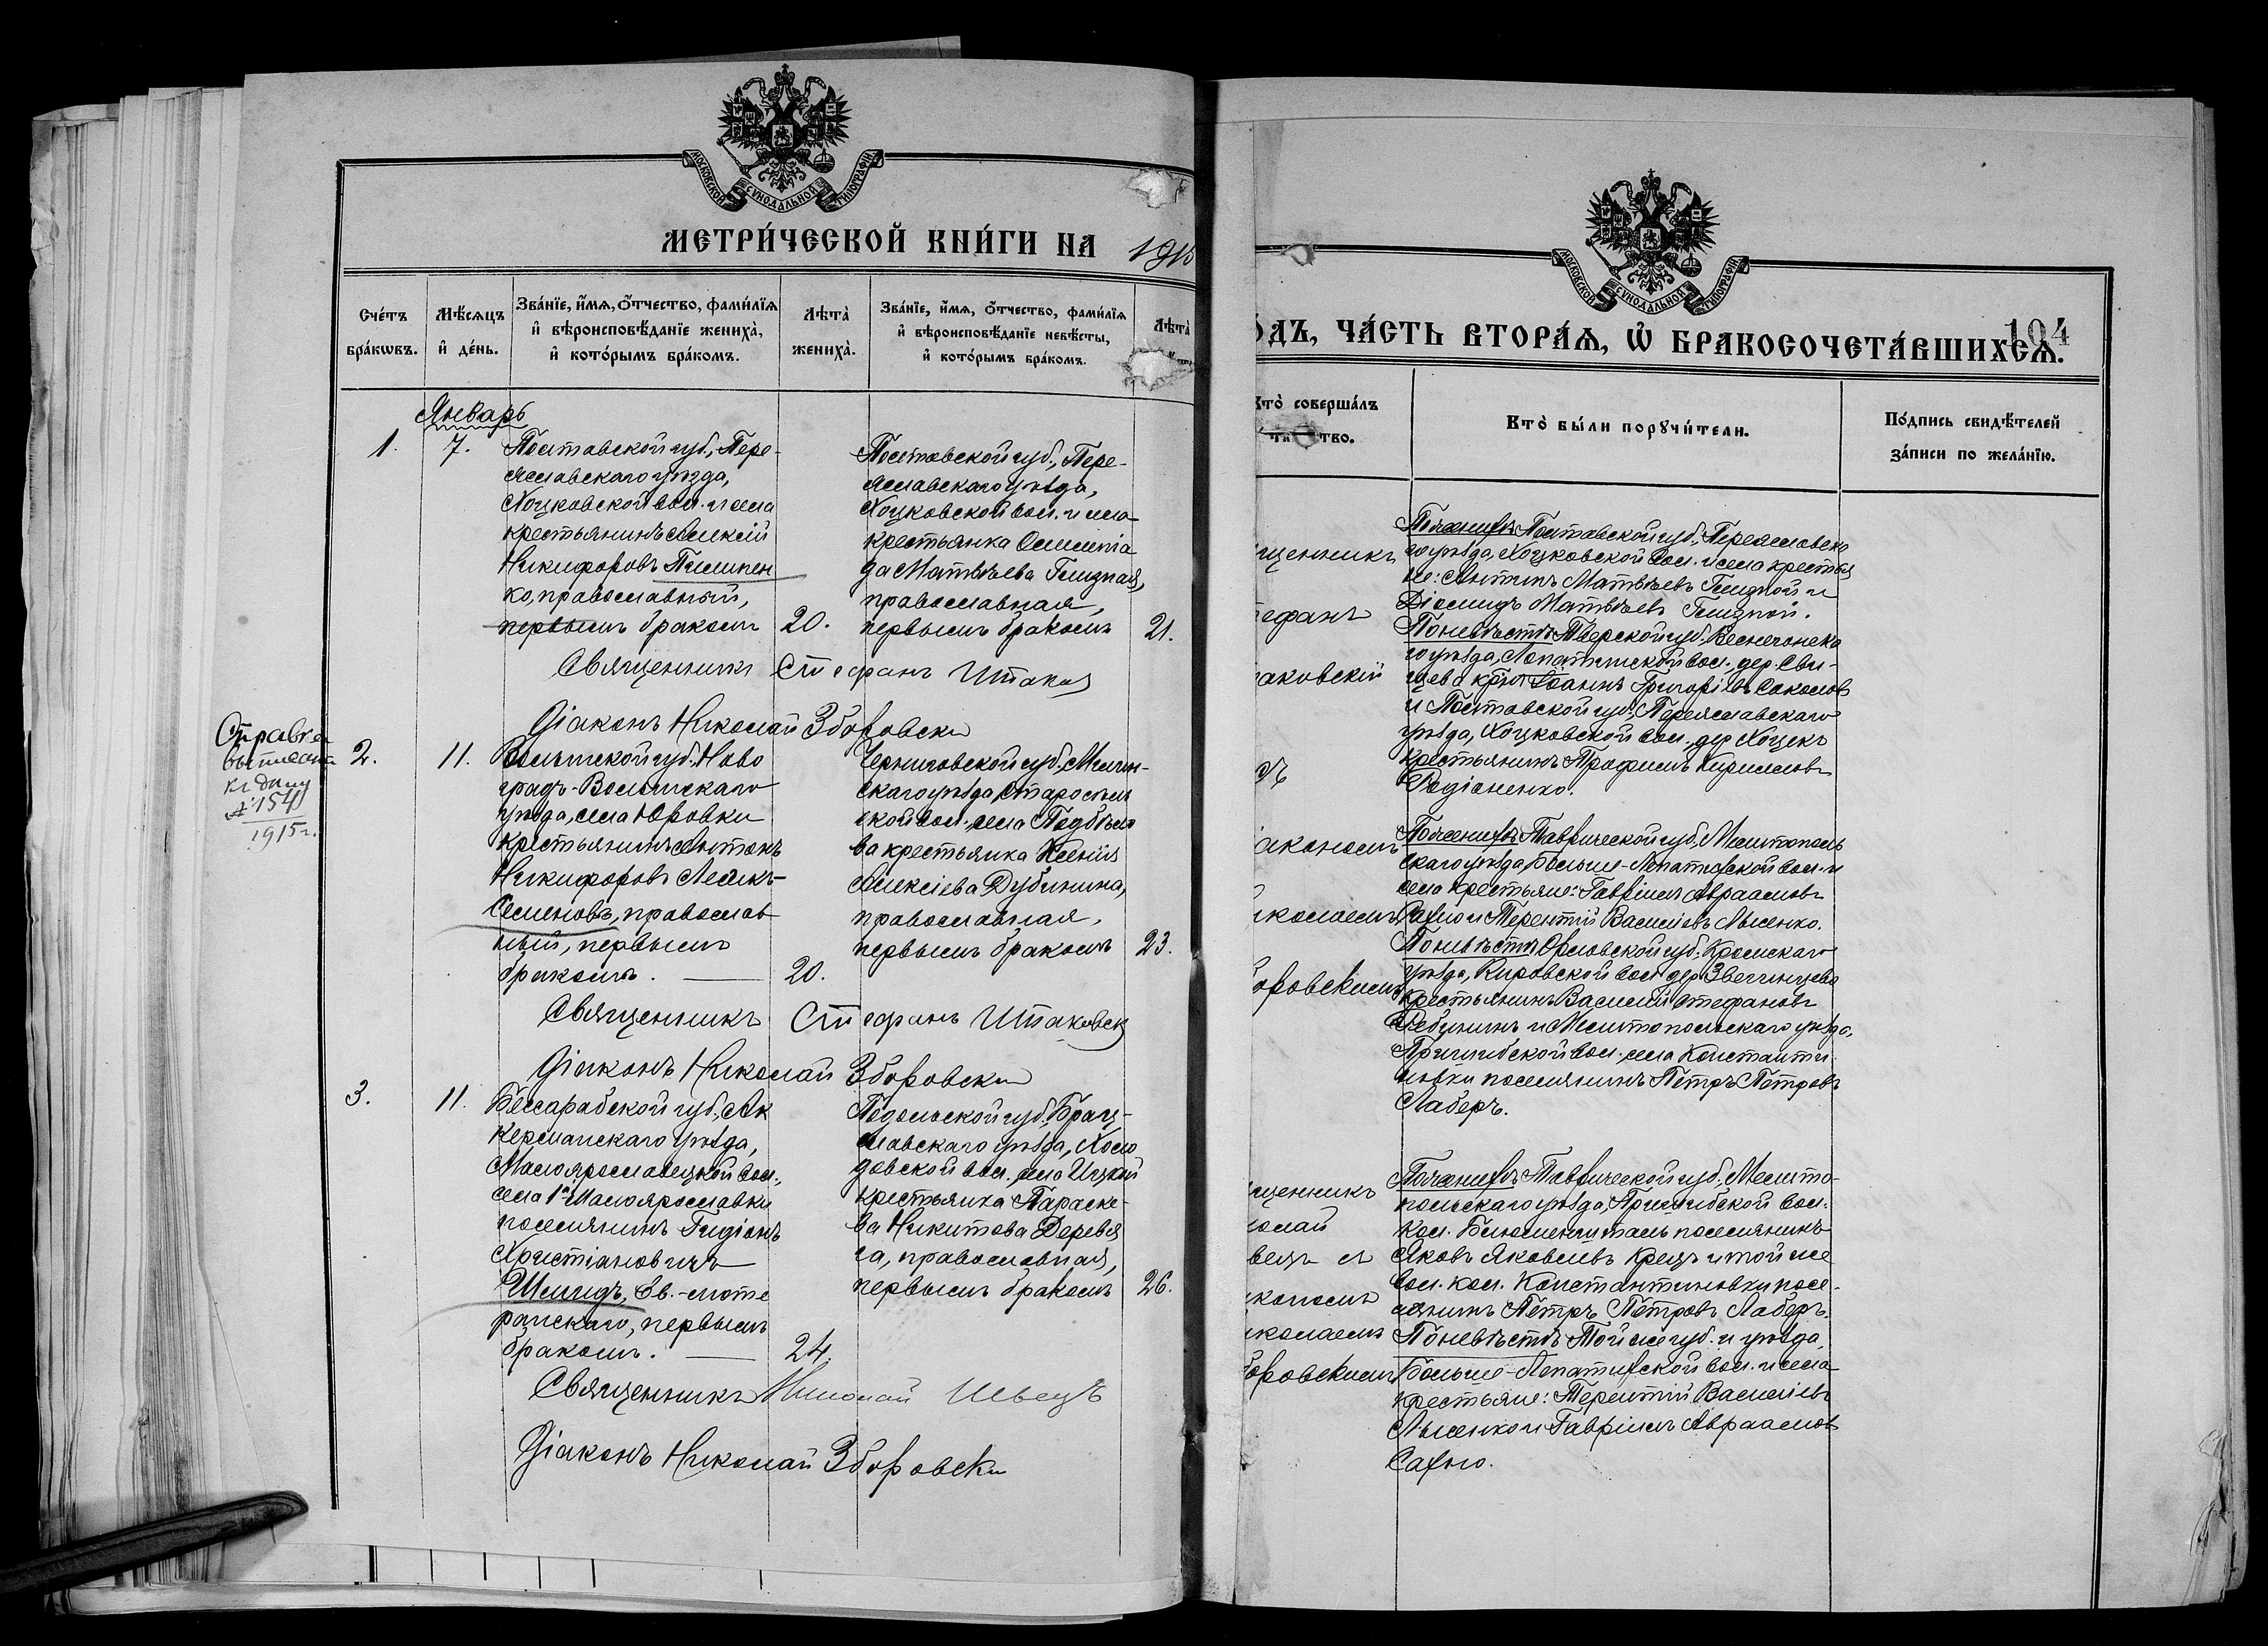 МОСКОВСКОЙ СѴНОДАЛЬНОЙ ТИПОГРАФІИ
МЕТРИ́ЧЕСКОЙ КНИ́ГИ НА 1915
Сче́тъ бра́кѡвъ.
Мѣ́сяцъ и҆ де́нь.
Зва́нїе, и҆́мѧ, ѻ҆́тчество, фами́лїѧ и҆ вѣроисповѣ́данїе жениха̀, и҆ кото́рымъ бра́комъ.
Лѣта̀ жениха̀.
Зва́нїе, и҆́мѧ, ѻ҆́тчество, фами́лїѧ и҆ вѣроисповѣ́данїе невѣ́сты, и҆ кото́рымъ бра́комъ.
Лѣта̀
Январь
1.
7.
Полтавской губ., Пере-
яславскаго уѣзда,
Хоцковской вол. и села
крестьянинъ Алексій
Никифоровъ Пилипен
ко, православный,
первымъ бракомъ
20.
Полтавской губ., Пере-
яславскаго уѣзда,
Хоцковской вол. и села
крестьянка Олимпіа
да Матвѣева Глизная,
православная,
первымъ бракомъ
21.
Священникъ Стефанъ
Діаконъ Николай Зборовски
Справка
къ дѣлу
№ 154
1915 г.
2.
11.
Волынской губ. Ново
градъ-Волынскаго
уѣзда, села Юровки
крестьянинъ Антонъ
Никифоровъ
Семеновъ, православ
ный, первымъ
бракомъ.
20.
Черниговской губ., Мглин-
скаго уѣзда, Старосель
ской вол., села
ва крестьянка Ксенія
Алексіева Дубинина,
православная,
первымъ бракомъ
23.
Священникъ Стефанъ
Діаконъ Николай Зборовски
3.
11.
Бессарабской губ., Ак
керманскаго уѣзда,
Малоярославецкой вол.,
села 1го Малоярославки
поселянинъ Гидіонъ
Христіановичъ
Шмидъ, Ев.-люте
ранскаго, первымъ
бракомъ.
24.
Подольской губ., Брац-
лавскаго уѣзда, Холо
довской вол., села
крестьянка Параске-
ва Никитова Деревя
га, православная,
первымъ бракомъ
26.
Священникъ Николай Швецъ
Діаконъ Николай Зборовски
МОСКОВСКОЙ СѴНОДАЛЬНОЙ ТИПОГРАФІИ
104
О́ДЪ, ЧА́СТЬ ВТОРА́Ѧ, Ѽ БРАКОСОЧЕТА́ВШИХСѦ.
Кто̀ соверша́лъ
та тво.
Кто̀ бы́ли порꙋчи́тели.
По́дпись свидѣ́телей за́писи по жела́нїю.
щенникъ
ефанъ
аковскій
По женихѣ: Полтавской губ., Переяславска
го уѣзда, Хоцковской вол. и села крестья
не: Антипъ Матвѣевъ Глизной и
Діомидъ Матвѣевъ Глизной.
По невѣстѣ: Тверской губ. Весьегонска
го уѣзда, Лопатинской вол., дер. Сви-
щева кр-нъ Іоаннъ Григоріевъ Соколовъ
и Полтавской губ., Переяславскаго
уѣзда, Хоцковской вол., дер. Хоцекъ
крестьянинъ Трофимъ Кирилловъ
Радіоненко.
съ
іакономъ
иколаемъ
оровскимъ
По женихѣ: Таврической губ., Мелитополь
скаго уѣзда, Больше-Лепатихской вол. и
села крестьяне: Гавріилъ Авраамовъ
Сахно и Терентій Василіевъ Лысенко.
По невѣстѣ: Орловской губ. Кромскаго
уѣзда, Кировской вол. дер. Звегинцева
крестьянинъ Василій Стефановъ
и Мелитопольскаго уѣзда,
Пришибской вол., села Константи
новки поселянинъ Петръ Петровъ
Лаберъ.
щенникъ
колай
вецъ съ
кономъ
иколаемъ
боровскимъ
По женихѣ: Таврической губ., Мелито-
польскаго уѣзда, Пришибской вол.
кол. Блюменталь поселянинъ
Яковъ Яковлевъ Крецъ и той же
вол. кол. Константиновки посе-
лянинъ Петръ Петровъ Лаберъ.
По невѣстѣ: Той же губ. и уѣзда,
Больше-Лепатихской вол. и села
крестьяне: Терентій Василіевъ
Лысенко и Гавріилъ Авраамовъ
Сахно.